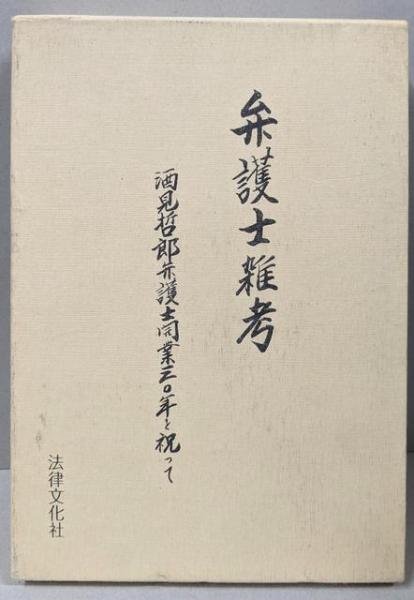 弁護士雑考
酒見哲郎弁護士開業三〇年を祝って
法律文化社